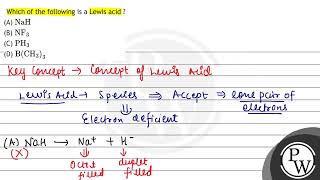 Which of the following is a Lewis acid ?
(A) NaH
(B) NF₃
(C) PH₃
(D) B(CH₃)₃
Key Concept → Concept of Lewis Acid
Lewis Acid → Species ⇒ Accept ⇒ lone pair of
electrons
⇓
Electron deficient
(A) NaH → Na⁺ + H⁻
(X) ⇓ ↓
Octet duplet
filled filled
P
W